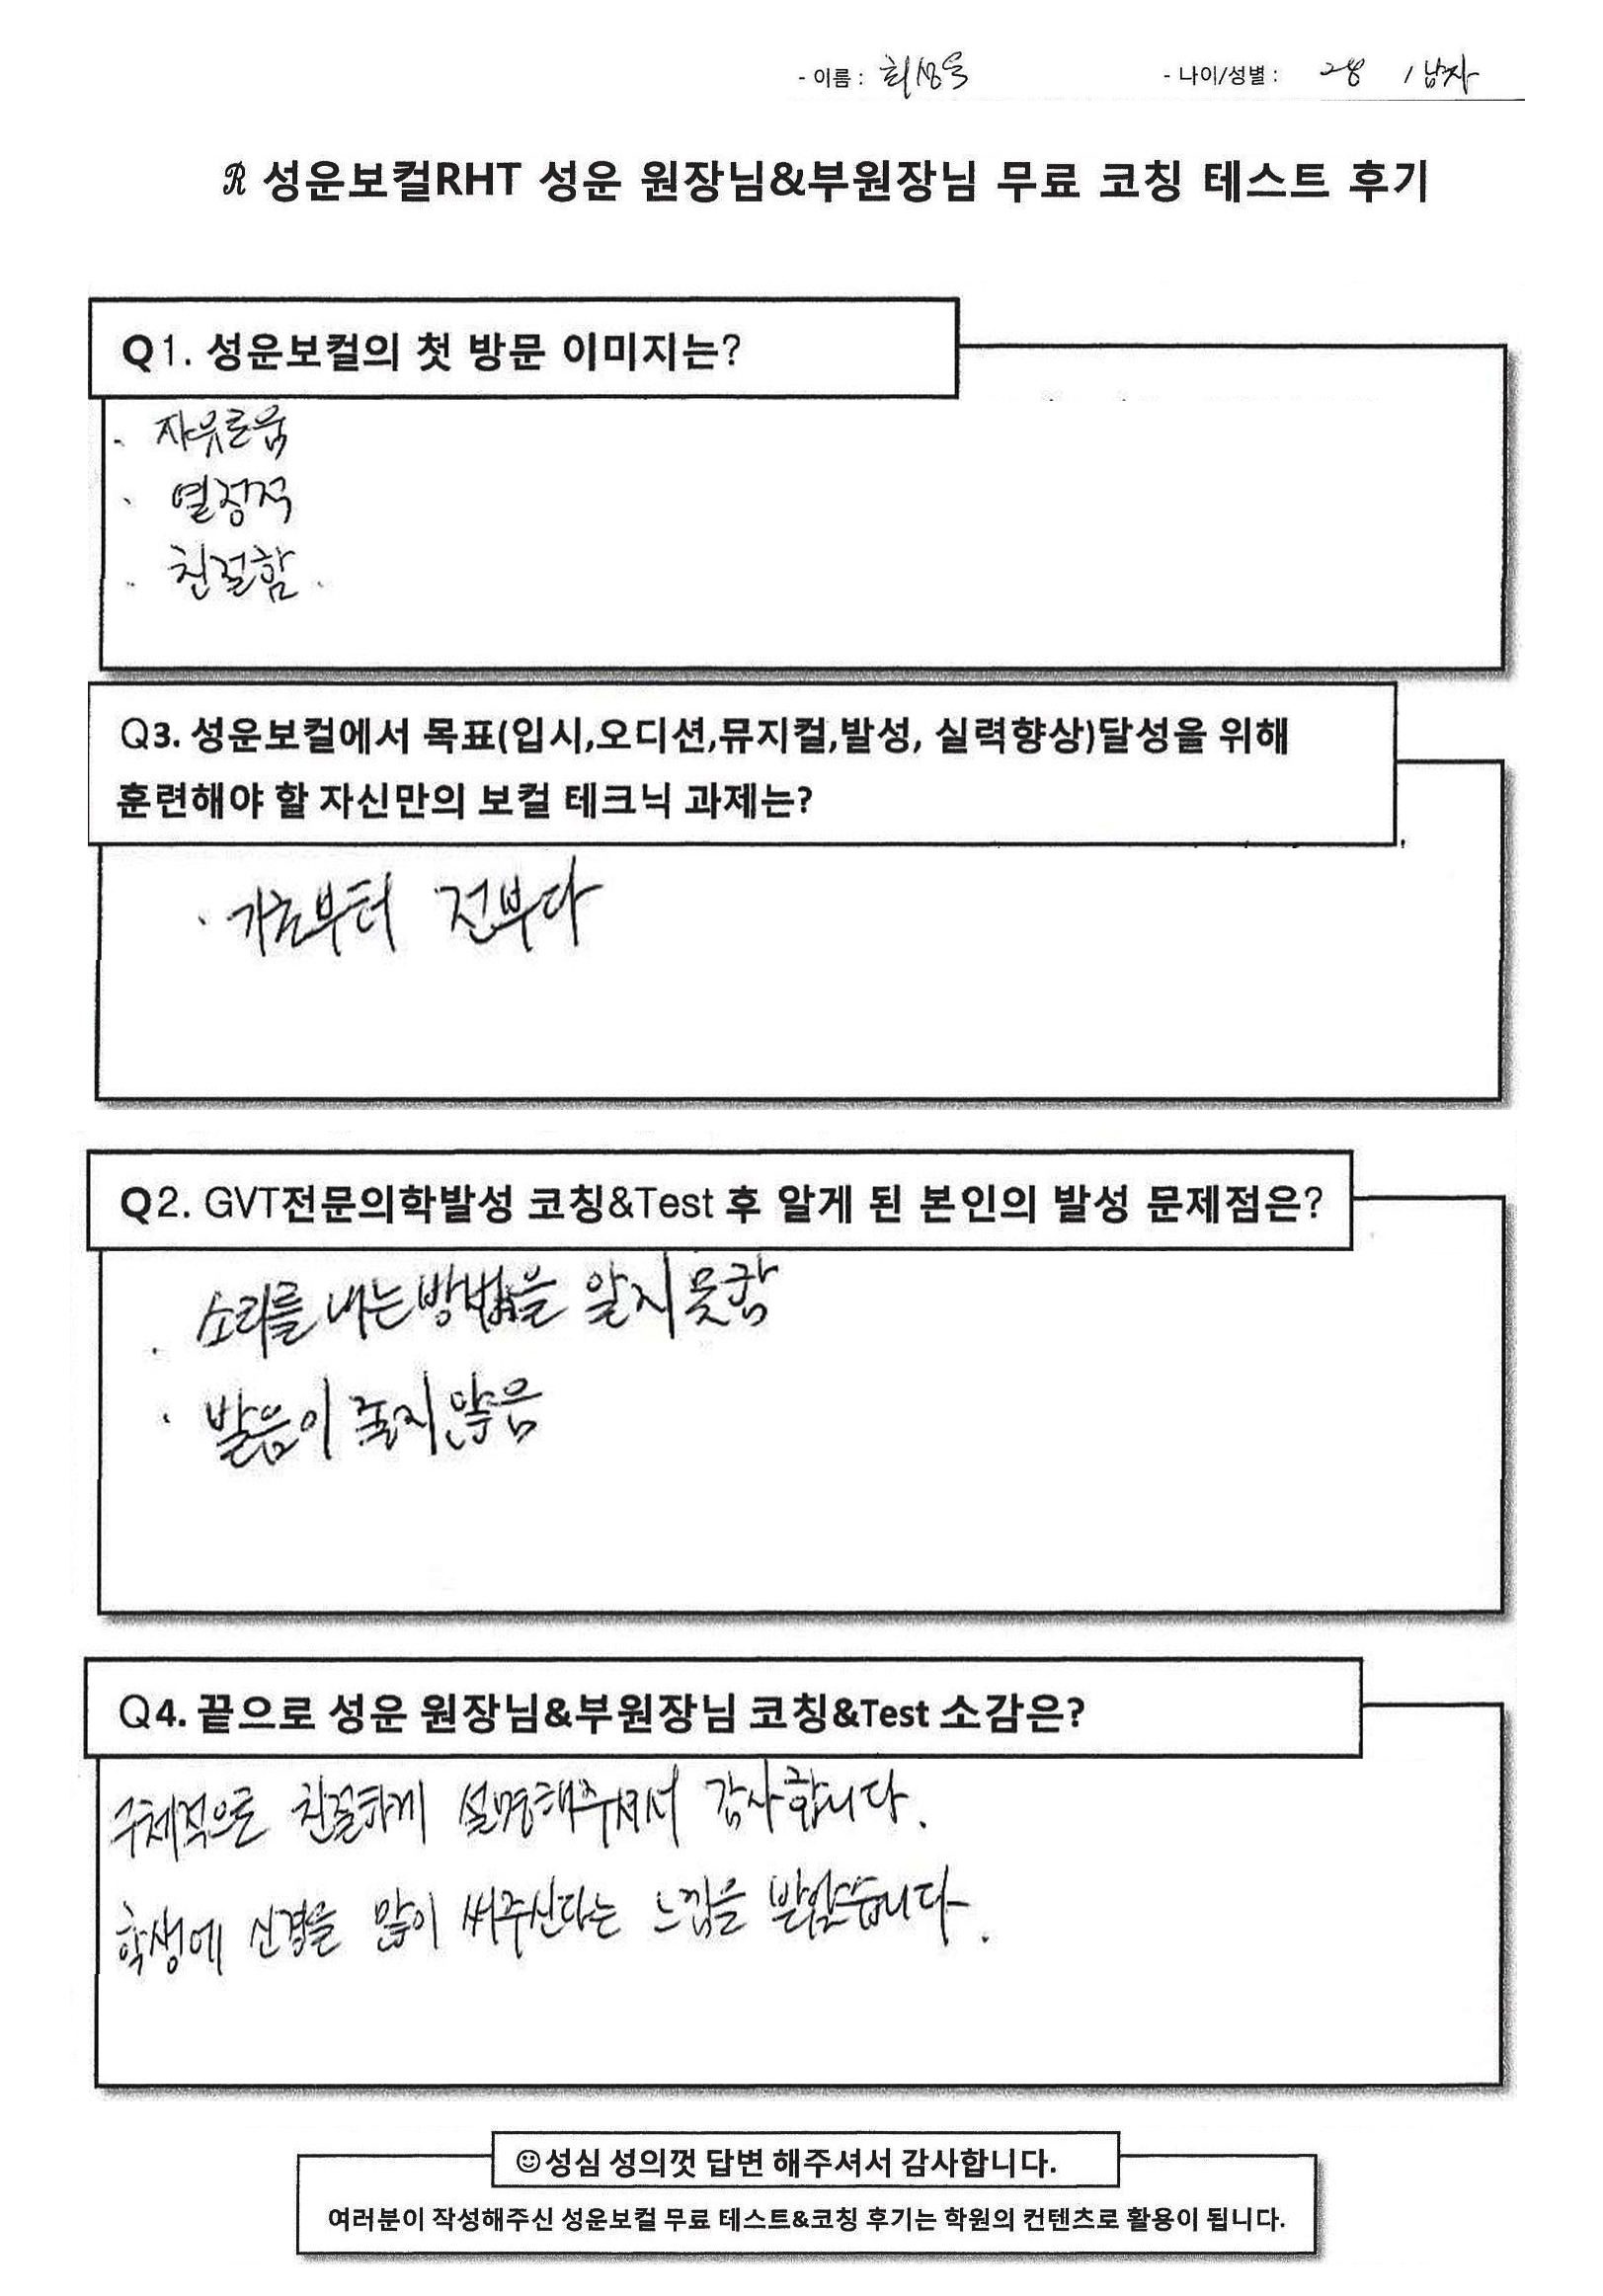 - 이름 : 최성욱 - 나이/성별 : 28 / 남자
R 성운보컬RHT 성운 원장님&부원장님 무료 코칭 테스트 후기
Q1. 성운보컬의 첫 방문 이미지는?
- 자유로움
- 열정적
- 친절함.
Q3. 성운보컬에서 목표(입시,오디션,뮤지컬,발성, 실력향상)달성을 위해
훈련해야 할 자신만의 보컬 테크닉 과제는?
· 기초부터 전부다
Q2. GVT전문의학발성 코칭&Test 후 알게 된 본인의 발성 문제점은?
· 소리를 내는방법을 알지못함
· 발음이 좋지않음
Q4. 끝으로 성운 원장님&부원장님 코칭&Test 소감은?
구체적으로 친절하게 설명해주셔서 감사합니다.
학생에 신경을 많이 써주신다는 느낌을 받았습니다.
☺성심 성의껏 답변 해주셔서 감사합니다.
여러분이 작성해주신 성운보컬 무료 테스트&코칭 후기는 학원의 컨텐츠로 활용이 됩니다.